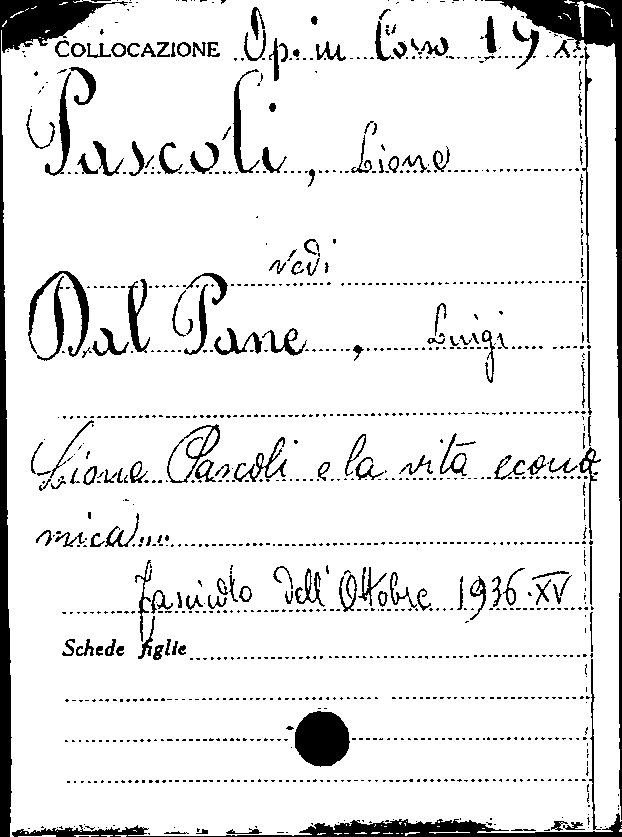 COLLOCAZIONE Op. in Corso 19
Pascoli, Lione
vedi
Dal Pane, Luigi
Lione Pascoli e la vita econo
mica....
fascicolo dell'Ottobre 1936-XV
Schede figlie